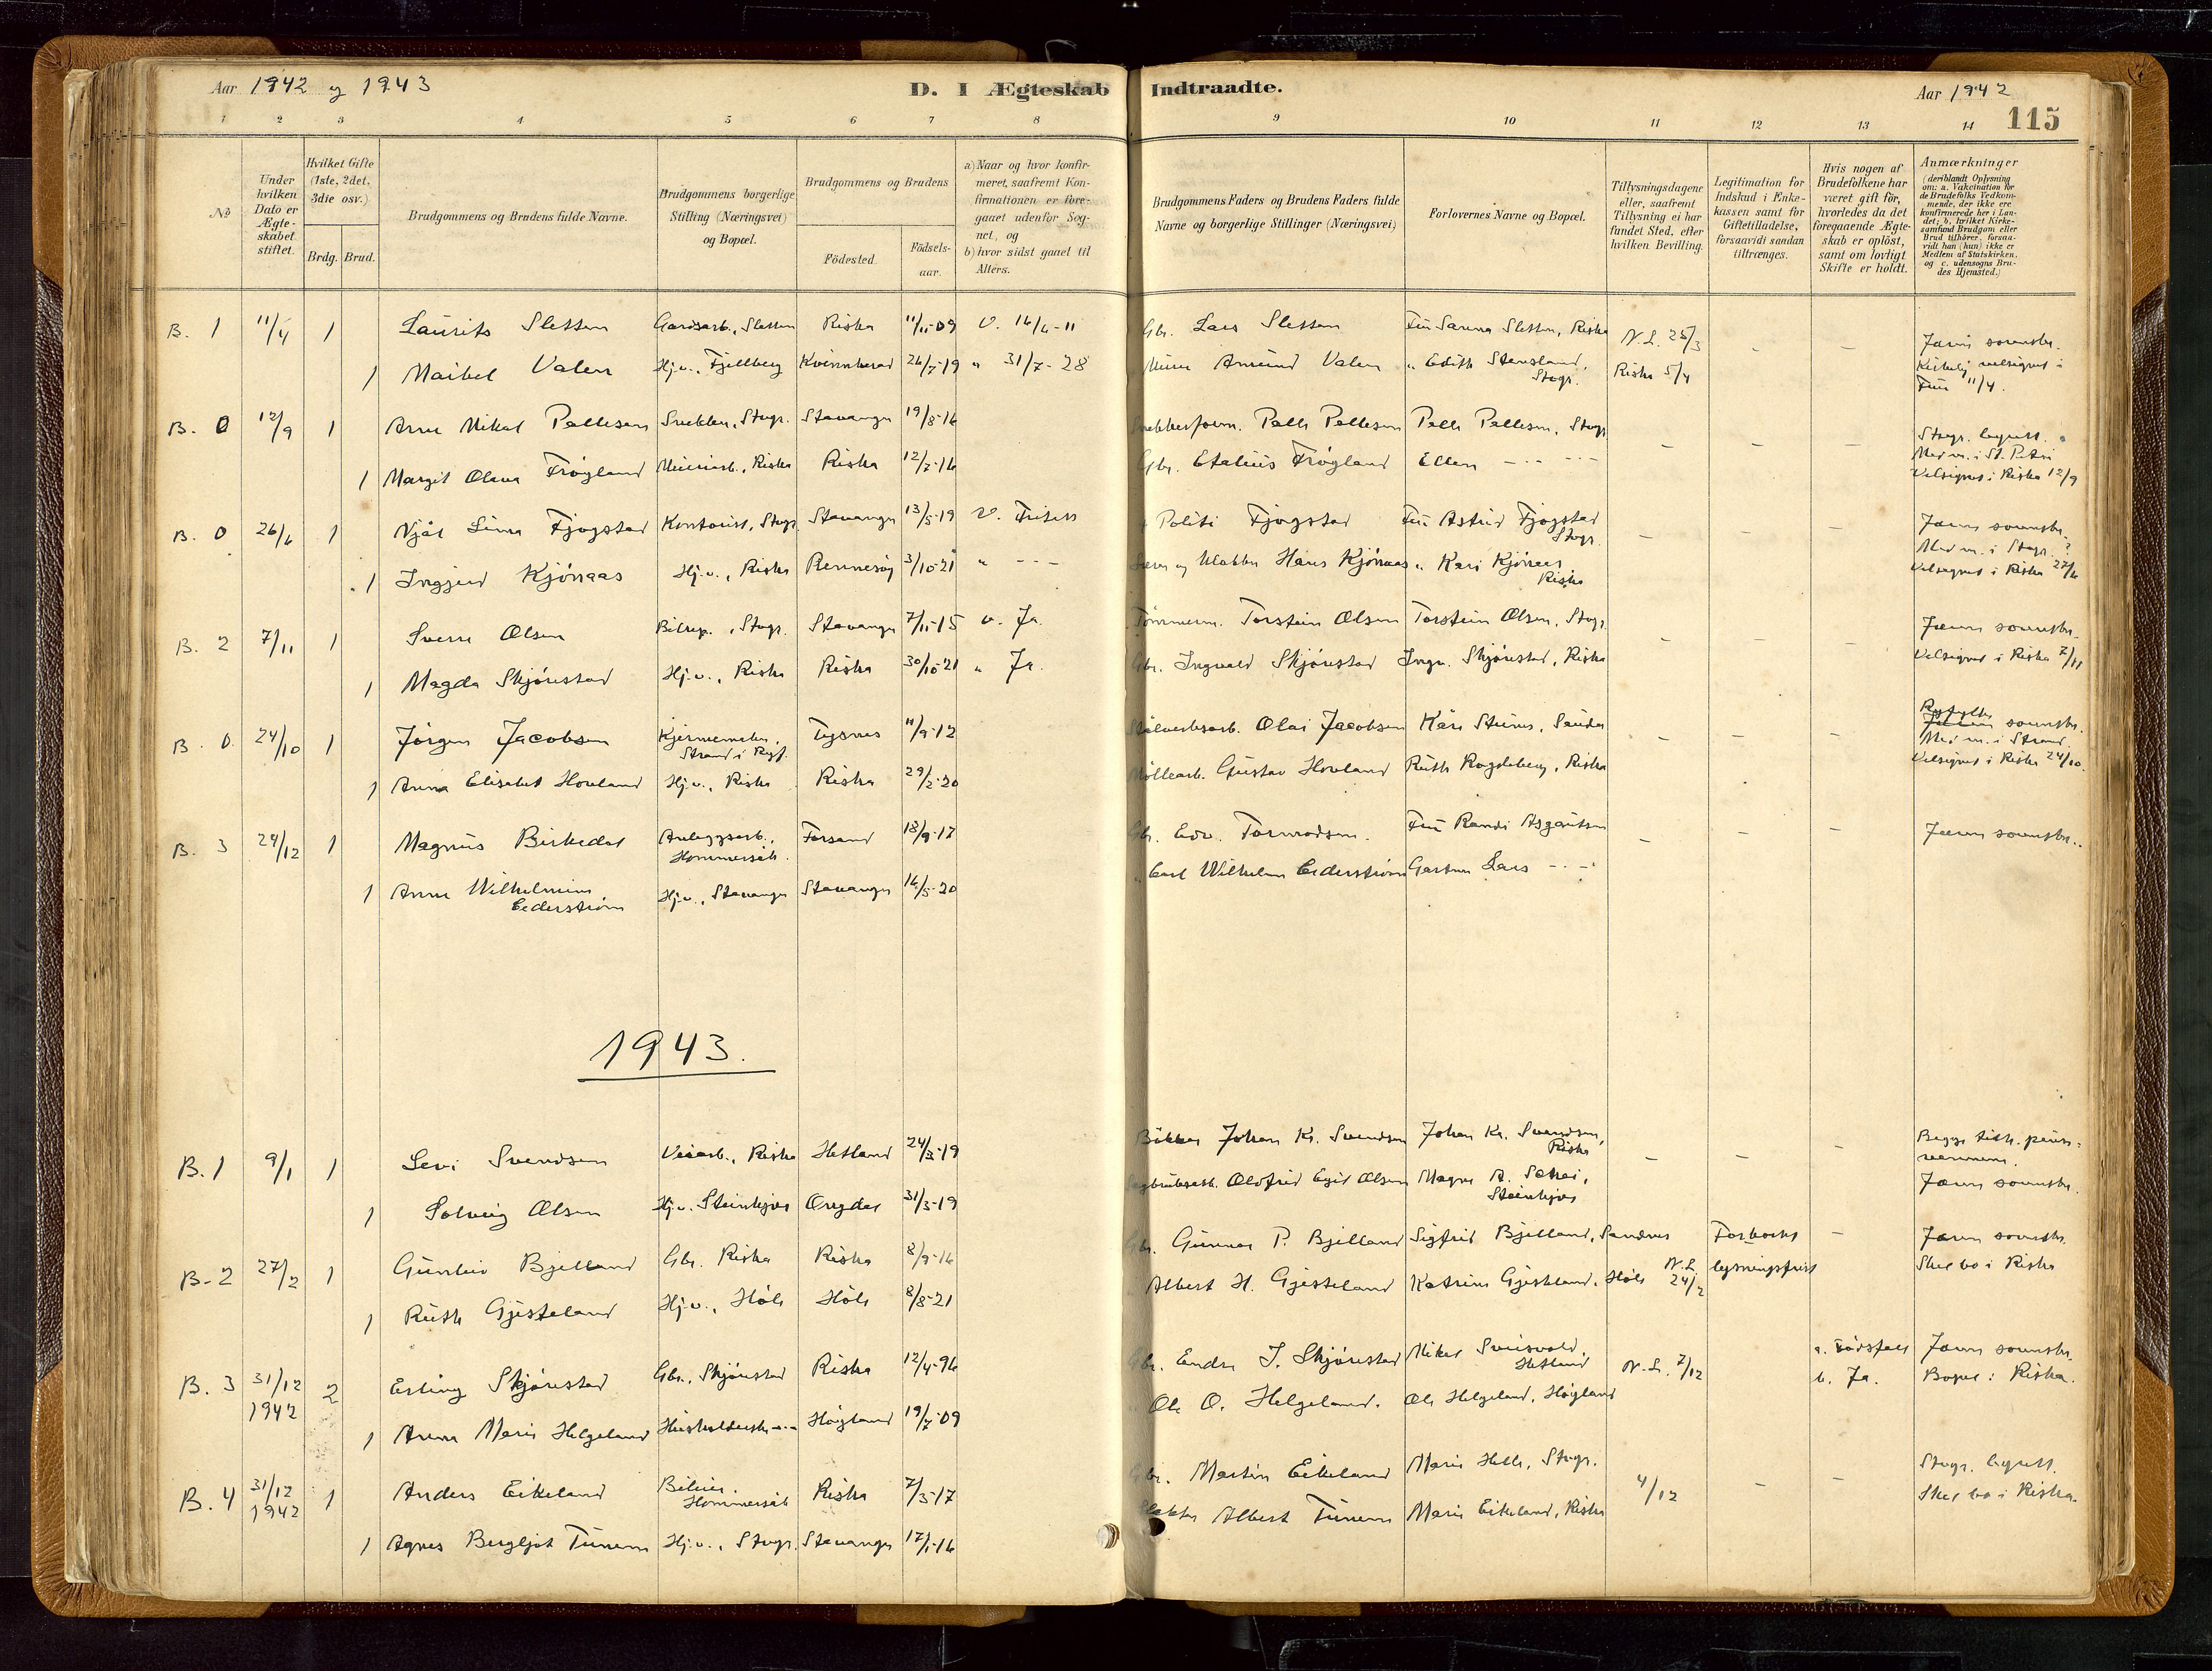 Aar 1942 og 1943
D. I Ægteskab Indtraadte.
Aar 1942
115
1 2 3 4 5 6 7 8 9 10 11 12 13 14
No
Under hvilken Dato er Ægteskabet stiftet.
Hvilket Gifte (1ste, 2det, 3die osv.)
Brdg. Brud.
Brudgommens og Brudens fulde Navne.
Brudgommens borgerlige Stilling (Næringsvei) og Bopæl.
Brudgommens og Brudens
Födested.
Födsels-aar.
a) Naar og hvor konfirmeret, saafremt Konfirmationen er foregaaet udenfor Sognet, og
b) hvor sidst gaaet til Alters.
Brudgommens Faders og Brudens Faders fulde Navne og borgerlige Stillinger (Næringsvei)
Forlovernes Navne og Bopæl.
Tillysningsdagene eller, saafremt Tillysning ei har fundet Sted, efter hvilken Bevilling.
Legitimation for Indskud i Enkekassen samt for Giftetilladelse, forsaavidt saadan tiltrænges.
Hvis nogen af Brudefolkene har været gift för, hvorledes da det foregaaende Ægteskab er oplöst, samt om lovligt Skifte er holdt.
Anmærkninger (deriblandt Oplysning om: a. Vakcination for de Brudefolks Vedkommende, der ikke ere konfirmerede her i Landet; b. hvilket Kirkesamfund Brudgom eller Brud tilhörer, forsaavidt han (hun) ikke er Medlem af Statskirken, og c. udensogns Brudes Hjemsted.)
B. 1 11/4 1 Laurits Sletten Gardsarb., Sletten Riska 11/11-09 v. 14/6-11 Gbr. Lars Sletten Fru Sanna Sletten, Riska N.L. 25/3 - - Jæren sorenskr.
1 Maibel Valen Hj.v., Fjellberg Kvinnherad 26/7-19 " 31/7-28 Murer Amund Valen " Edith Stensland, Stvgr. Riska 5/4 Kirkelig velsignet i Frue 11/4.
B. 0 12/9 1 Arne Mikal Pellesen Snekker, Stvgr. Stavanger 19/8-16 Snekkerform. Pelle Pellesen Pelle Pellesen, Stvgr - - - Stvgr. byrett.
Med m. i St. Petri
1 Margit Olava Frøyland Riska Riska 12/7-16 Gbr. Etalius Frøyland Ellen - " - Velsignet i Riska 12/9
B. 0 26/6 1 Njål Lima Fjogstad Kontorist, Stvgr. Stavanger 13/5-19 v. Politi Fjogstad Fru Astrid Fjogstad Stvgr. - - - Jæren sorenskr.
Med m. i Stvgr. ?
1 Ingjerd Kjønaas Hj.v., Riska Rennesøy 3/10-21 " - - - Lærer og klokker Hans Kjønaas " Kari Kjønaas Riska Velsignet i Riska 27/6
B. 2 7/11 1 Sverre Olsen Bilrep., Stvgr. Stavanger 7/11-15 v. Ja. Tømmerm. Torstein Olsen Torstein Olsen, Stvgr. - - - Jæren sorenskr.
1 Magda Skjørestad Hj.v., Riska Riska 30/10-21 " Ja. Gbr. Ingvald Skjørestad Ingv. Skjørestad, Riska Velsignet i Riska 7/11
B. 0 24/10 1 Jörgen Jacobsen Strand i Ryf. Tysnes 11/9-12 Stålverksarb. Olai Jacobsen Kåre Sauda - - - Ryfylke sorenskr.
Med m. i Strand.
1 Anna Elisabet Hovland Hj.v., Riska Riska 29/2-20 Møllearb. Gustav Hovland Ruth Rogdeberg, Riska Velsignet i Riska 24/10.
B. 3 24/12 1 Magnus Birkedal Anleggsarb., Hommersåk. Forsand 18/9-17 Gbr. Edv. Tormodsen. Fru Randi Asgautsen - - - Jæren sorenskr.
1 Anna Wilhelmine Cederstrøm Hj.v., Stavanger Stavanger 16/5-20 " Carl Wilhelm Cederstrøm Gartner Lars - " -
1943.
B. 1 9/1 1 Levi Svendsen Veiarb., Riska Hetland 24/3-19 Bökker Johan Kr. Svendsen Johan Kr. Svendsen, Riska - - - Begge tilh. pinsevennene.
1 Solveig Olsen Hj.v. Steinkjer 31/3-19 Olsen Magne A. Steinkjer Jæren sorenskr.
B. 2 27/2 1 Gunleiv Bjelland Gbr. Riska Riska 8/9-16 Gbr. Gunnar P. Bjelland Sigfrid Bjelland, Sandnes Forkortet - Jæren sorenskr.
1 Ruth Gjesteland Hj.v., Høle Høle 8/8-21 " Albert H. Gjesteland Katrine Gjesteland, Høle N.L. 24/2 lysningsfrist Skal bo i Riska
B. 3 31/12 1942 2 Erling Skjørestad Gbr., Skjørestad Riska 12/4-96 Gbr. Endre J. Skjørestad Mikal Hetland N.L. 7/12 a. Dødsfall Jæren sorenskr.
1 Anna Marie Helgeland Husholderske - " - Høgland 19/7-09 " Ole O. Helgeland. Ole Helgeland, Høgland b. Ja. Bopel: Riska.
B. 4 31/12 1942 1 Anders Eikeland Bileier. Hommersåk Riska 7/3-17 Gbr. Martin Eikeland Marie Helle, Stvgr. 4/12 - - Stvgr. byrett.
1 Agnes Bergljot Tunem Hj.v., Stvgr. Stavanger 17/1-16 Slakter Albert Tunem Marie Eikeland, Riska Skal bo i Riska.